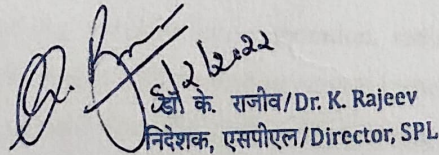 8/2/2022
डॉ के. राजीव/Dr. K. Rajeev
निदेशक, एसपीएल/Director, SPL